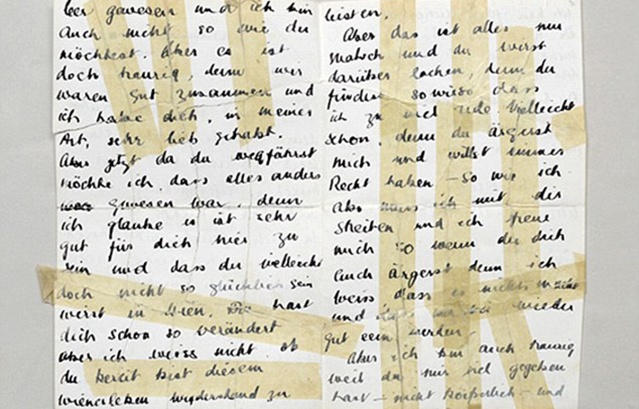 leer gewesen und ich bin
auch nicht so wie du
möchtest. Aber es ist
doch traurig, denn wir
waren gut zusammen und
ich habe dich, in meiner
Art, sehr lieb gehabt.
Aber jetzt da du wegfährst
möchte ich, dass alles anders
gewesen war, denn
ich glaube es ist sehr
gut für dich hier zu
sein und dass du vielleicht
doch nicht so glücklich sein
wirst in Wien. Du hast
dich schon so verändert
aber ich weiss nicht ob
du bereit bist diesem
wienerleben widerstand zu
leisten.
Aber das ist alles nur
und du wirst
darüber lachen, denn du
findest sowieso dass
ich zu viel rede. Vielleicht
schon, denn du ärgerst
mich und willst immer
Recht haben – so wie ich
Also muss ich mit dir
streiten und ich freue
mich so wenn du dich
auch ärgerst denn ich
weiss dass es nichts macht
und dass wir wieder
gut sein werden
Aber ich bin auch traurig
weil du mir viel gegeben
hast – nicht körperlich – und